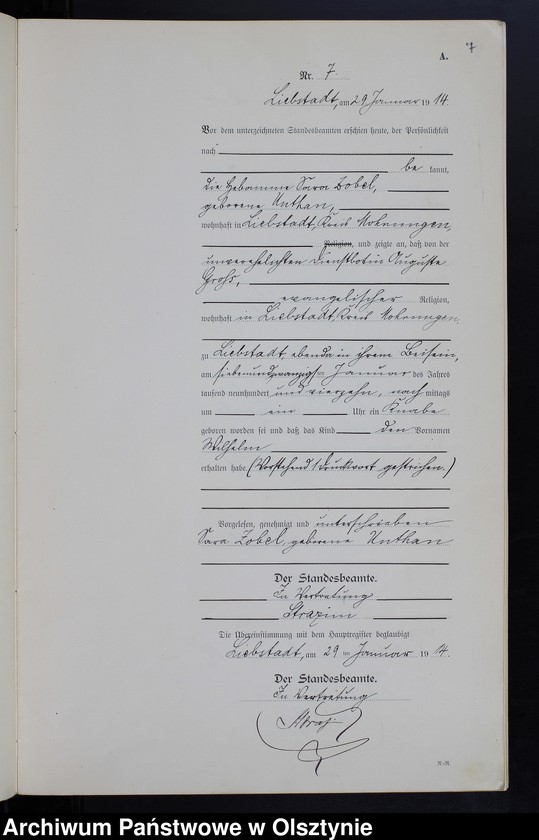 7
A.
Nr. 7.
Liebstadt, am 29 Januar 1914.
Vor dem unterzeichneten Standesbeamten erschien heute, der Persönlichkeit
nach
be kannt,
die Hebamme Sara Zobel,
geborene Unthan,
wohnhaft in Liebstadt, Kreis Mohrungen,
Religion, und zeigte an, daß von der
unverehelichten Dienstbotin Auguste
Groß,
evangelischer Religion,
wohnhaft in Liebstadt, Kreis Mohrungen,
zu Liebstadt, ebenda in ihrem Beisein,
am siebenundzwanzigsten Januar des Jahres
tausend neunhundert und vierzehn, nach mittags
um ein Uhr ein Knabe
geboren worden sei und daß das Kind den Vornamen
Wilhelm
erhalten habe. (Vorstehend 1 Druckwort gestrichen.)
Vorgelesen, genehmigt und unterschrieben
Sara Zobel, geborene Unthan
Der Standesbeamte.
In Vertretung
Die Übereinstimmung mit dem Hauptregister beglaubigt
Liebstadt, am 29 ten Januar 1914.
Der Standesbeamte.
In Vertretung
Archiwum Państwowe w Olsztynie